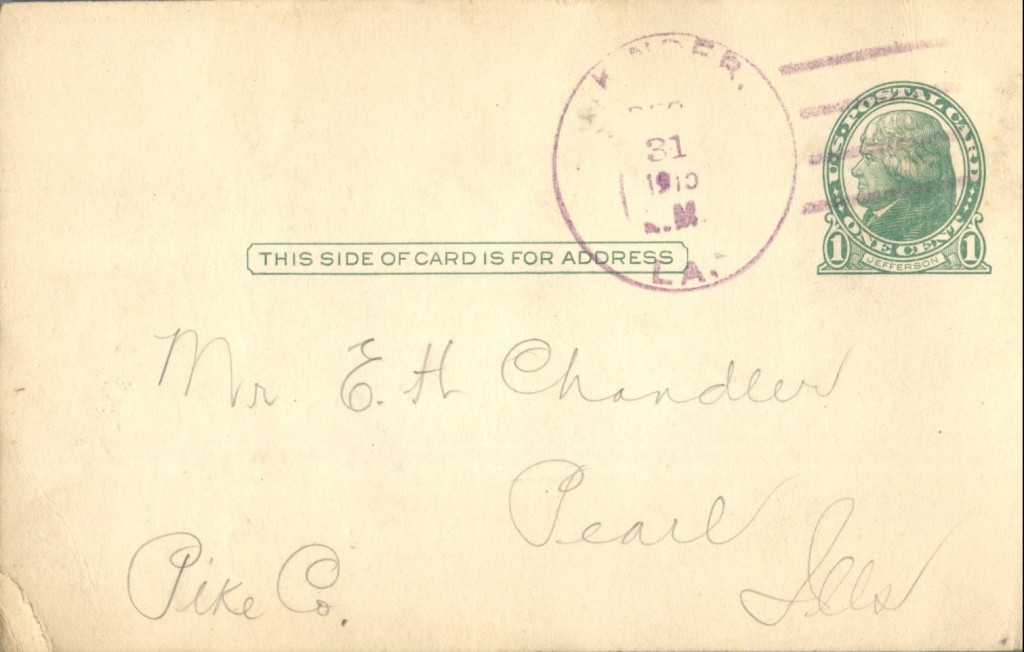 KINDER,
DEC
31
M
LA.
U.S. POSTAL CARD
ONE CENT
1 JEFFERSON 1
THIS SIDE OF CARD IS FOR ADDRESS
Mr. E. H. Chandler
Pearl
Pike Co. Ills